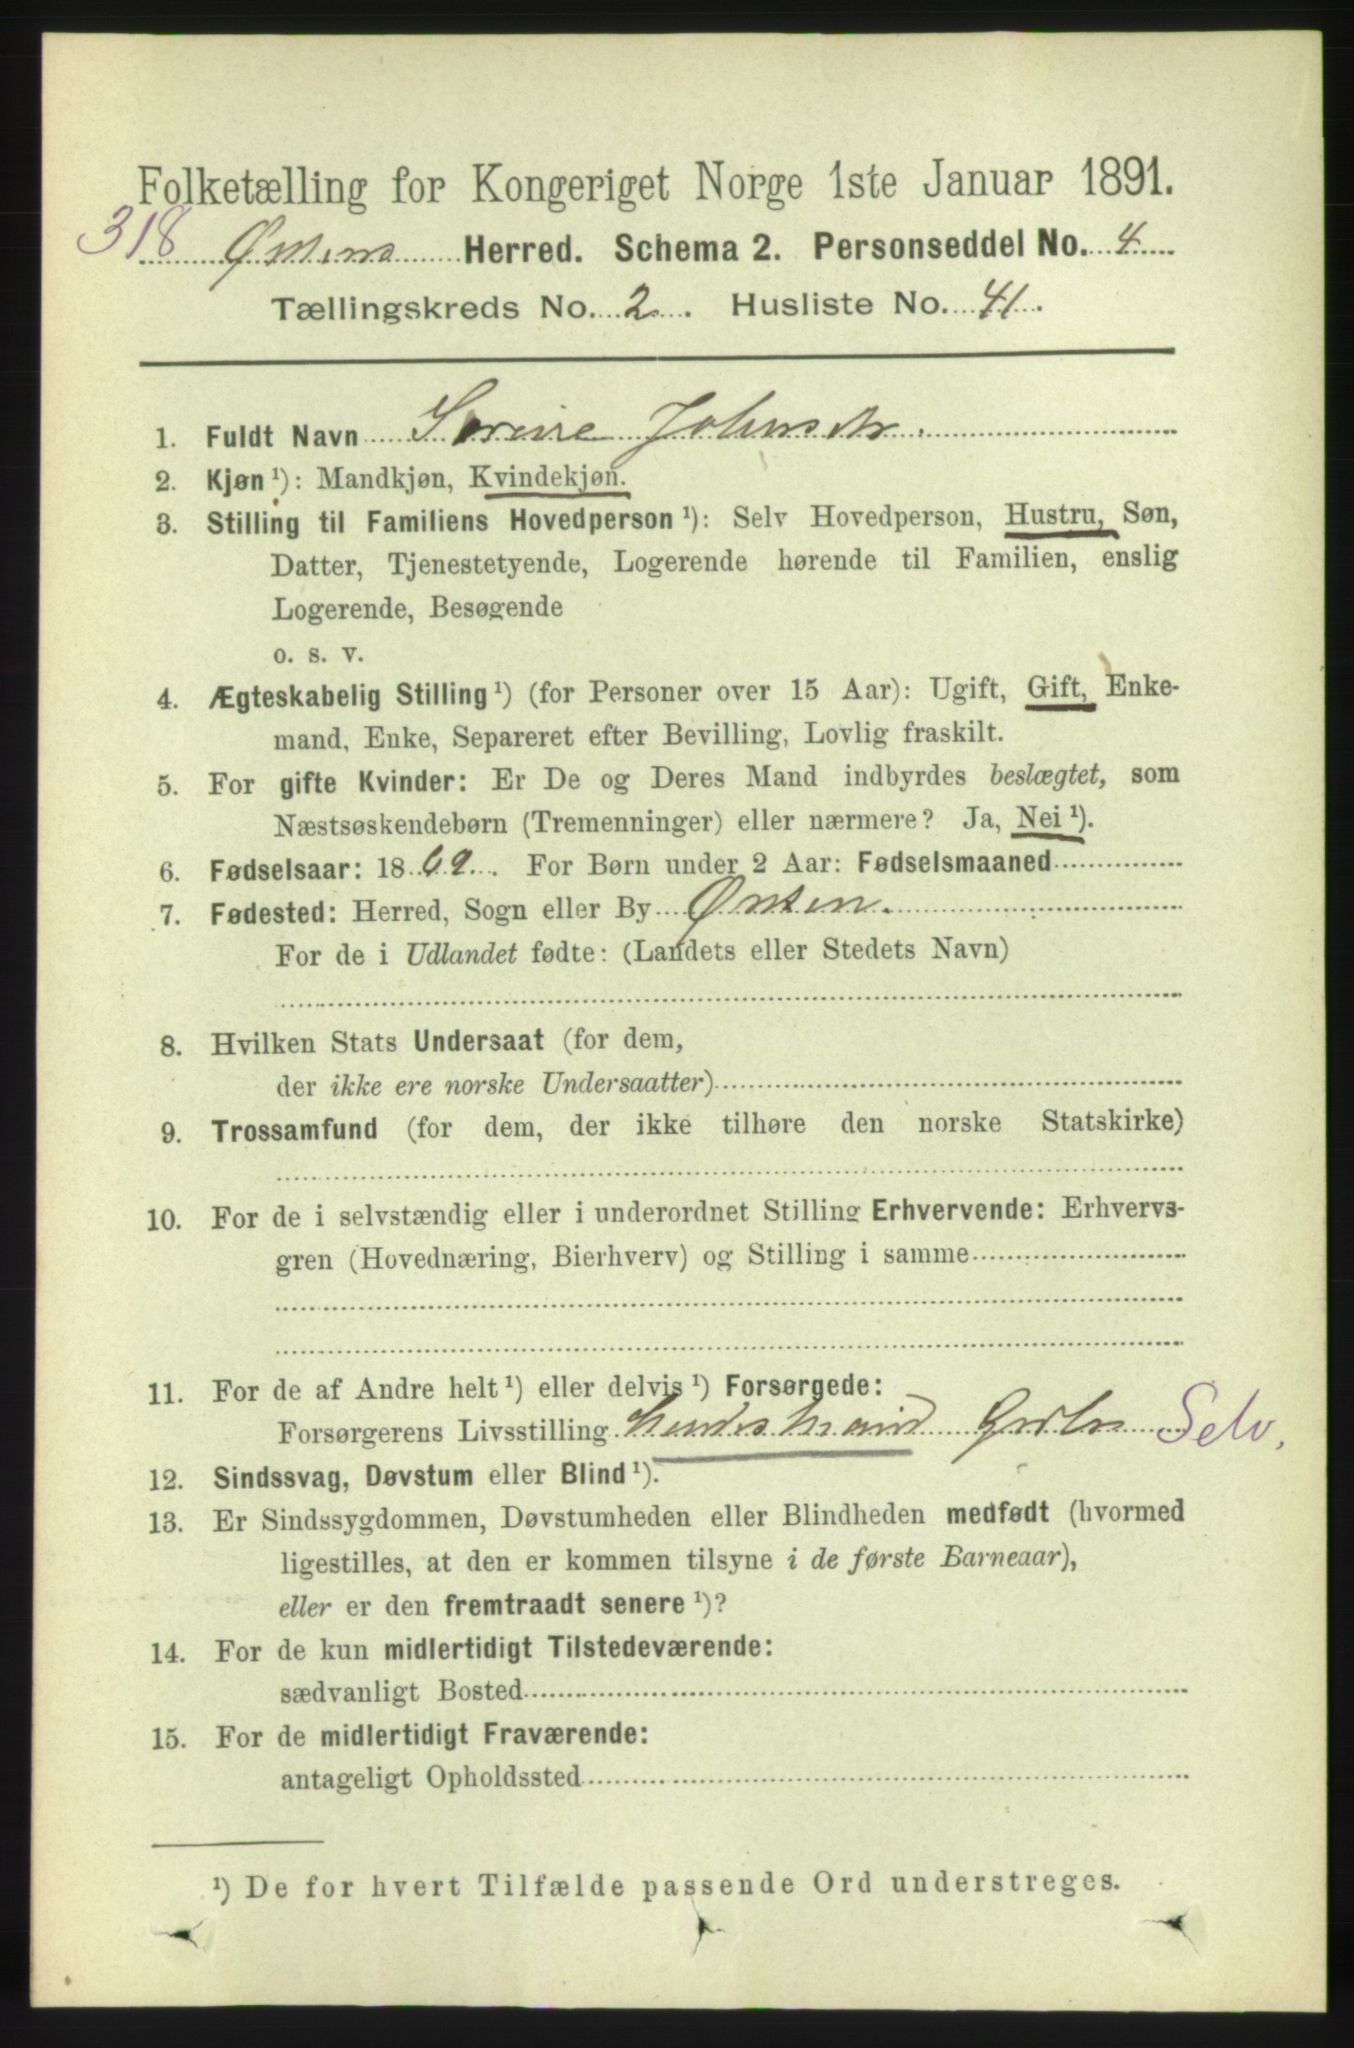 Folketælling for Kongeriget Norge 1ste Januar 1891.
318 Østens Herred. Schema 2. Personseddel No. 4
Tællingskreds No. 2. Husliste No. 41.
1. Fuldt Navn Serine Johnsdtr.
2. Kjøn ¹): Mandkjøn, Kvindekjøn.
3. Stilling til Familiens Hovedperson ¹): Selv Hovedperson, Hustru, Søn,
Datter, Tjenestetyende, Logerende hørende til Familien, enslig
Logerende, Besøgende
o. s. v.
4. Ægteskabelig Stilling ¹) (for Personer over 15 Aar): Ugift, Gift, Enke-
mand, Enke, Separeret efter Bevilling, Lovlig fraskilt.
5. For gifte Kvinder: Er De og Deres Mand indbyrdes beslægtet, som
Næstsøskendebørn (Tremenninger) eller nærmere? Ja, Nei ¹).
6. Fødselsaar: 1869. For Børn under 2 Aar: Fødselsmaaned
7. Fødested: Herred, Sogn eller By Østen.
For de i Udlandet fødte: (Landets eller Stedets Navn)
8. Hvilken Stats Undersaat (for dem,
der ikke ere norske Undersaatter)
9. Trossamfund (for dem, der ikke tilhøre den norske Statskirke)
10. For de i selvstændig eller i underordnet Stilling Erhvervende: Erhvervs-
gren (Hovednæring, Bierhverv) og Stilling i samme
11. For de af Andre helt ¹) eller delvis ¹) Forsørgede:
Forsørgerens Livsstilling Selv.
12. Sindssvag, Døvstum eller Blind ¹).
13. Er Sindssygdommen, Døvstumheden eller Blindheden medfødt (hvormed
ligestilles, at den er kommen tilsyne i de første Barneaar),
eller er den fremtraadt senere ¹)?
14. For de kun midlertidigt Tilstedeværende:
sædvanligt Bosted
15. For de midlertidigt Fraværende:
antageligt Opholdssted
¹) De for hvert Tilfælde passende Ord understreges.